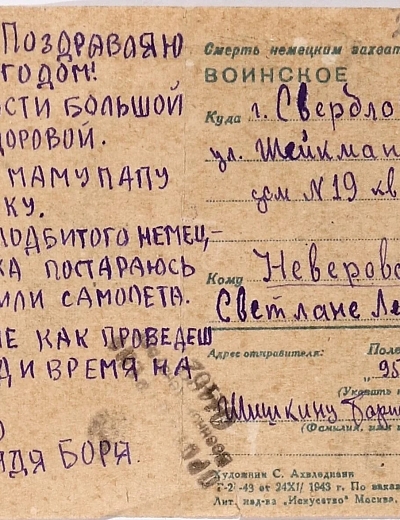 ПОЗДРАВЛЯЮ
ГОДОМ!
ОСТИ БОЛЬШОЙ
ДОРОВОЙ.
МАМУ ПАПУ
КУ.
ПОДБИТОГО НЕМЕЦ,-
КА ПОСТАРАЮСЬ
ИЛИ САМОЛЕТА.
НЕ КАК ПРОВЕДЕШ
Д И ВРЕМЯ НА
О
ДЯДЯ БОРЯ.
Смерть немецким захват
ВОИНСКОЕ
Куда г. Свердло
ул. Шейкмана
дом N 19 кв
Кому Неверовс
Светлане Ле
Адрес отправителя: Поле
95
(Указать
Шишкину Бори
(Фамилия, имя
Художник С. Ахвледиани
Г-2 -43 от 24XII 1943 г. По заказ
Лит. изд-ва „Искусство" Москва.